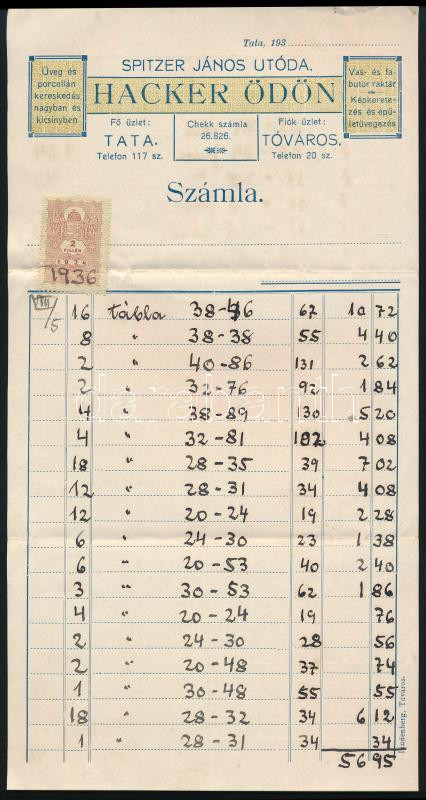 Tata, 193
SPITZER JÁNOS UTÓDA.
HACKER ÖDÖN
Üveg és
porcellán
kereskedés
nagyban és
kicsinyben
Vas- és fa-
butor raktár
Képkerete-
zés és épü-
letüvegezés
Fő üzlet:
TATA.
Telefon 117 sz.
Chekk számla
26,826.
Fiók üzlet:
TÓVÁROS.
Telefon 20 sz.
Számla.
2
FILLÉR
1934
1936
VIII/5 16 tábla 38-46 67 10 72
8 " 38-38 55 4 40
2 " 40-86 131 2 62
2 " 32-76 92 1 84
4 " 38-89 130 5 20
4 " 32-81 102 4 08
18 " 28-35 39 7 02
12 " 28-31 34 4 08
12 " 20-24 19 2 28
6 " 24-30 23 1 38
6 " 20-53 40 2 40
3 " 30-53 62 1 86
4 " 20-24 19 76
2 " 24-30 28 56
2 " 20-48 37 74
1 " 30-48 55 55
18 " 28-32 34 6 12
1 " 28-31 34 34
56 95
Nudenberg, Tóváros.
darabanth